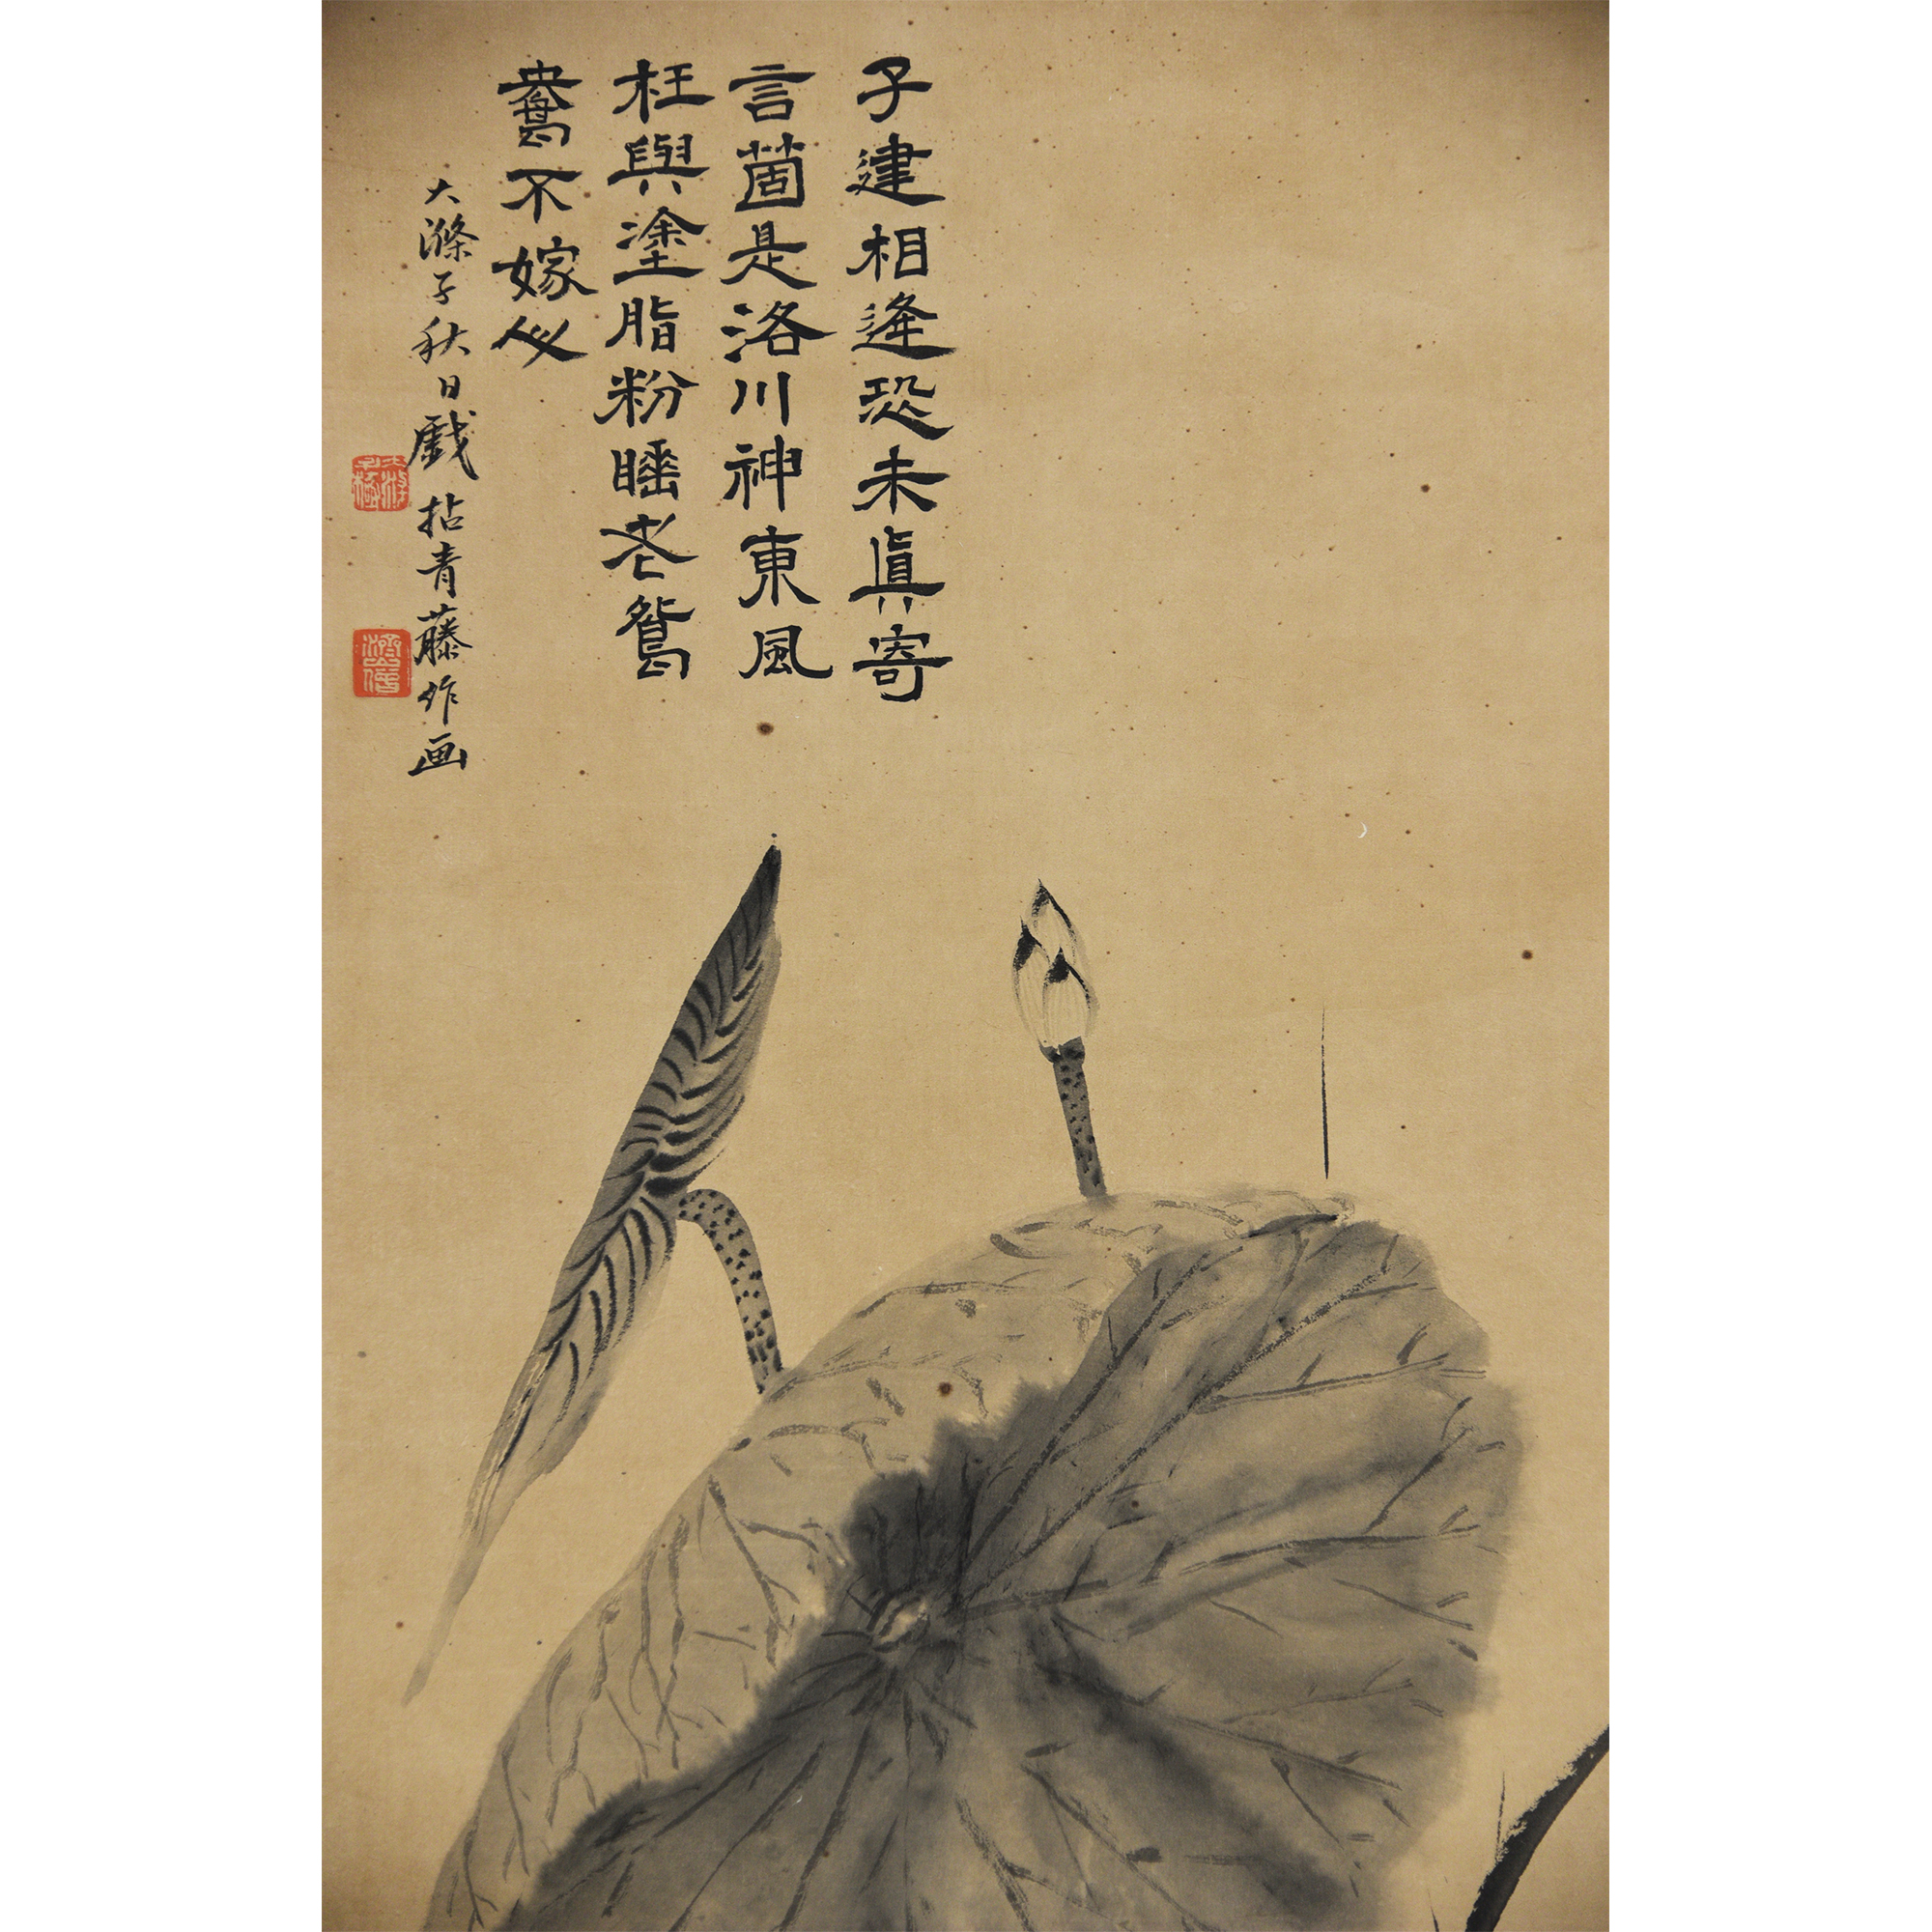 子建相逢恐未眞寄
言箇是洛川神東風
枉與塗脂粉睡老鴛
鴦不嫁人
大滌子秋日戲拈青藤作画